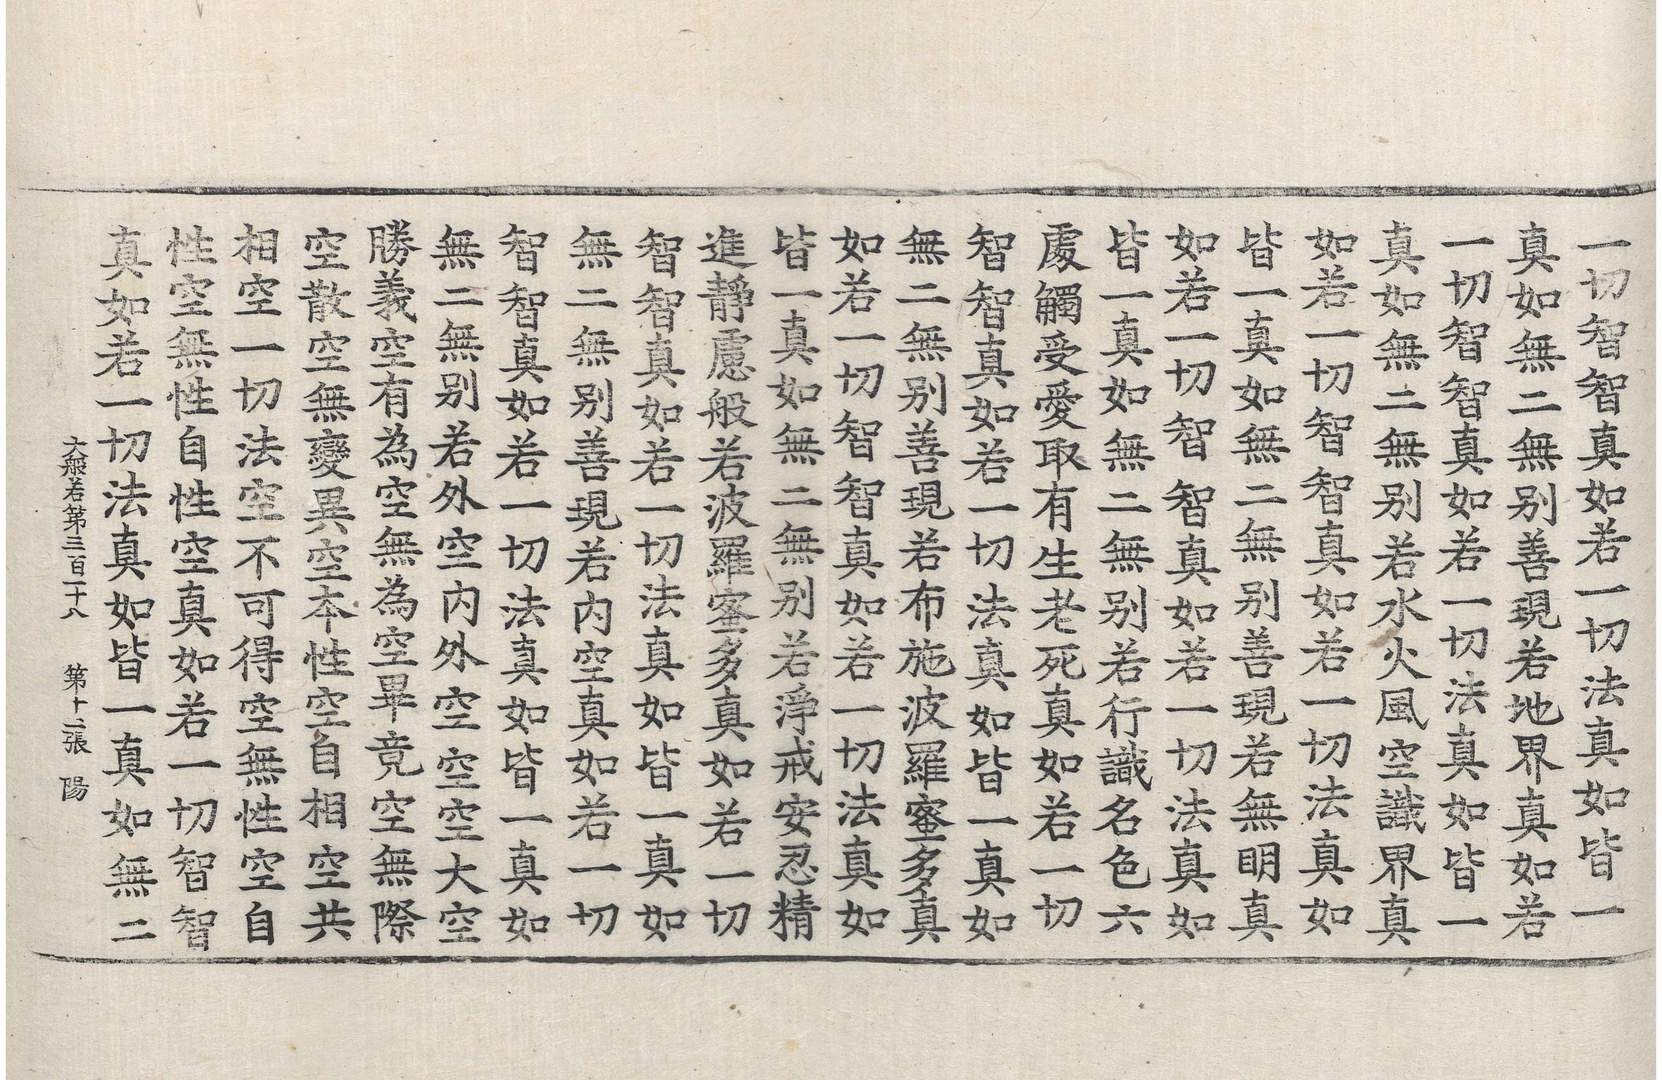 一切智智真如若一切法真如皆一
真如無二無別善現若地界真如若
一切智智真如若一切法真如皆一
真如無二無別若水火風空識界真
如若一切智智真如若一切法真如
皆一真如無二無別善現若無明真
如若一切智智真如若一切法真如
皆一真如無二無別若行識名色六
處觸受愛取有生老死真如若一切
智智真如若一切法真如皆一真如
無二無別善現若布施波羅蜜多真
如若一切智智真如若一切法真如
皆一真如無二無別若淨戒安忍精
進靜慮般若波羅蜜多真如若一切
智智真如若一切法真如皆一真如
無二無別善現若內空真如若一切
智智真如若一切法真如皆一真如
無二無別若外空內外空空空大空
勝義空有為空無為空畢竟空無際
空散空無變異空本性空自相空共
相空一切法空不可得空無性空自
性空無性自性空真如若一切智智
真如若一切法真如皆一真如無二
大般若第三百二十八　第十二張　陽